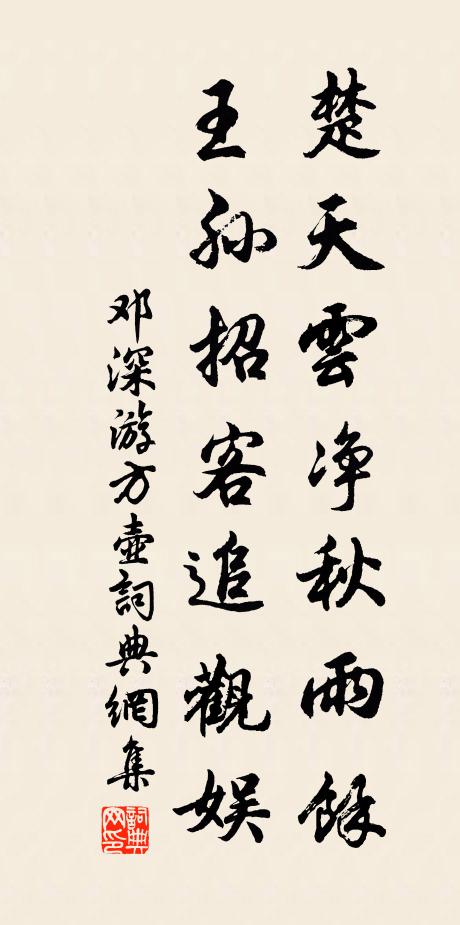 楚天雲净秋雨餘
王孙招客追觀娱
邓深游方壶詞典網集
詞典網印